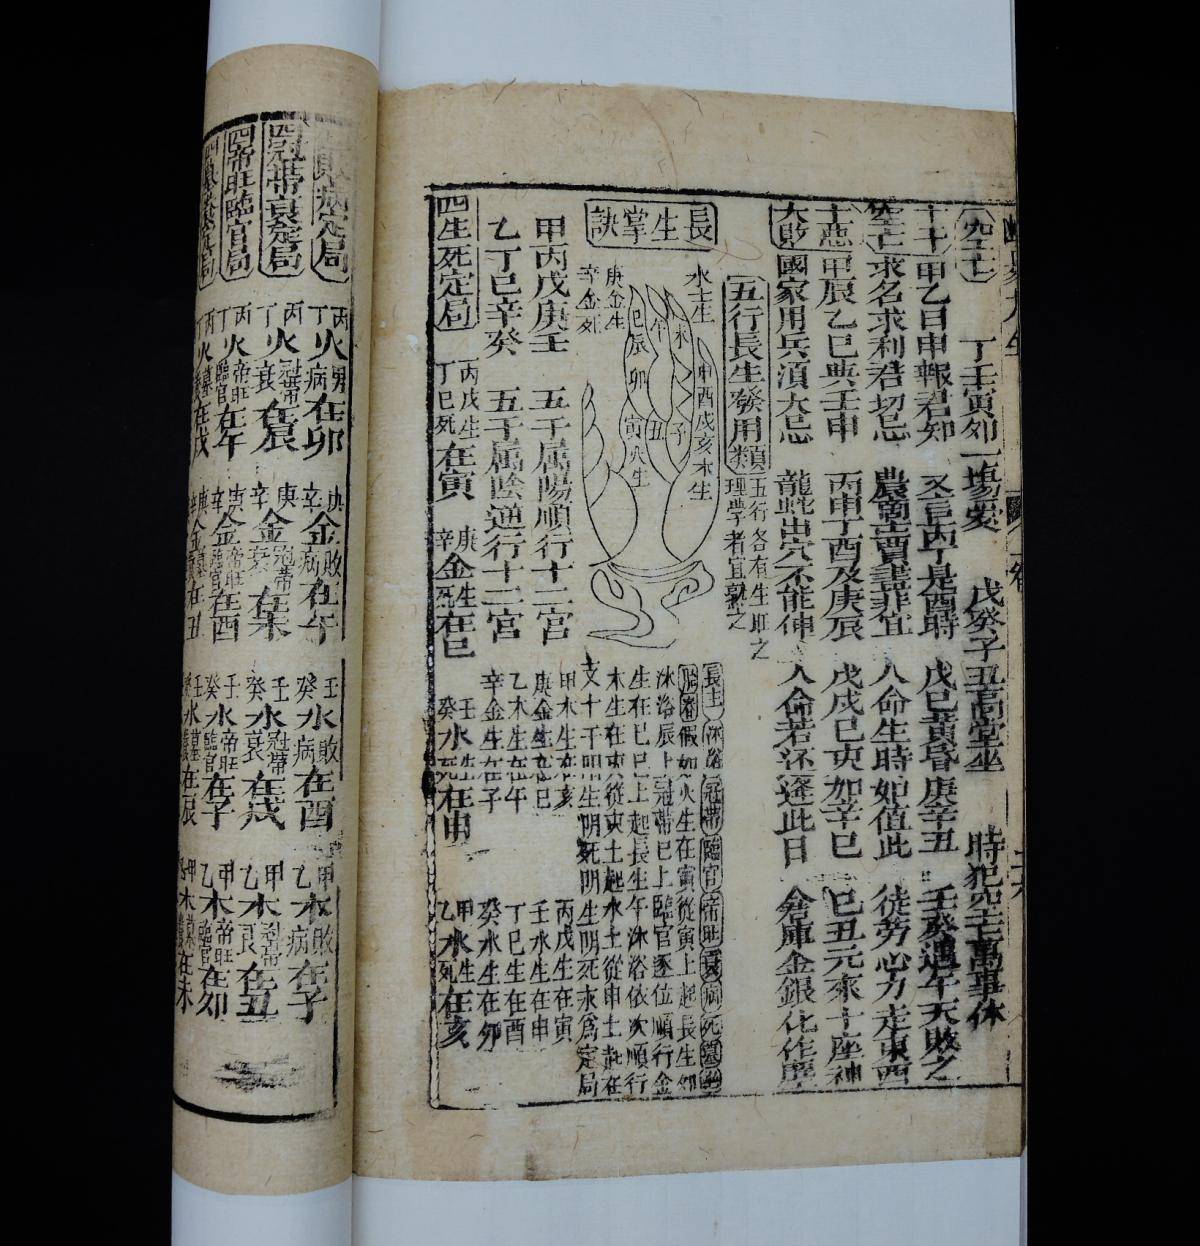 丁壬寅卯一場愛 戊癸子丑高堂坐 時犯四士萬事休
十干 甲乙日申報君知 丙丁是酉時 戊巳黃昏庚辛丑 壬癸遇午天敗之
空亡 求名求利若切忌 農商士賈盡菲宜 人命生時如值此 徒勞心力走東西
十惡 甲辰乙巳與壬申 丙申丁酉及庚辰 戊戌己亥加辛巳 巳丑元來十座神
大敗 國家用兵須大忌 龍蛇出穴不能伸 人命若还逢此日 倉庫金銀化作塵
五行長生發用類 五行各有生旺之
理學者宜熟之
長生掌訣
水土生
申酉戌亥木生
未
子
午
丑
巳辰卯寅火生
庚金生
辛金死
長生 沐浴 冠帶 臨官 帝旺 衰 病 死 墓
胎 養 假如火生在寅從寅上起長生卯
沐浴辰上冠帶巳上臨官逐位順行金
生在巳巳上起長生午沐浴依次順行
木生在亥從亥上起水土從申上起在
支十干明生明死明生明死永為定局
甲木生在亥 丙戊生在寅
庚金生在巳 壬水生在申
乙木生在午 丁巳生在酉
辛金生在子 癸水生在卯
甲丙戊庚壬 五干属陽順行十二宮
乙丁巳辛癸 五干属陰通行十二宮
四生死定局 丙戊生丁巳死在寅 庚辛金生死在巳 壬癸水生死在申 甲乙水生死在亥
敗病定局 丙丁火病在卯 庚辛金敗病在午 壬癸水敗病在酉 甲乙木敗病在子
四冠帶衰定局 丙丁火冠帶衰在辰 庚辛金冠帶衰在未 壬癸水冠帶衰在戌 甲乙木冠帶衰在丑
四帝旺臨官局 丙丁火帝旺臨官在午 庚辛金帝旺臨官在酉 壬癸水帝旺臨官在子 甲乙木帝旺臨官在卯
局 丙丁火墓在戌 庚辛金墓在丑 壬癸水墓在辰 木墓在未